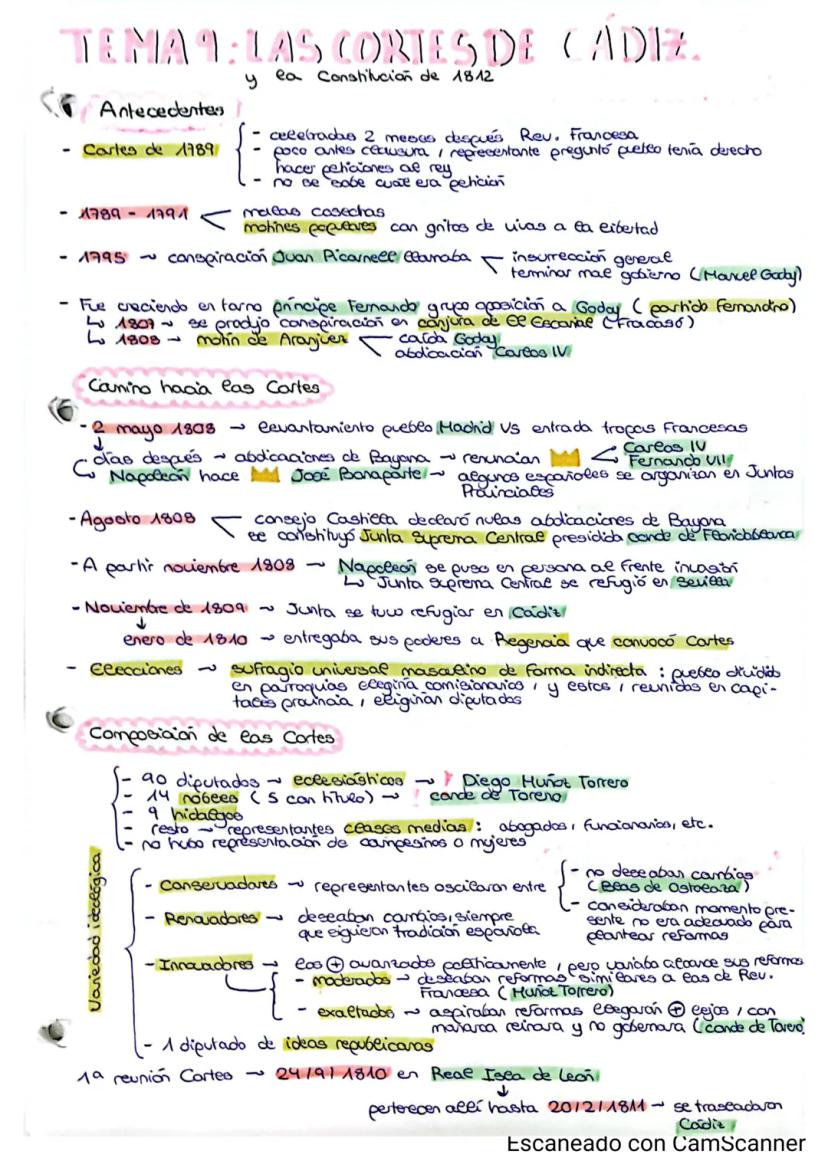 TEMA 9: LAS CORTES DE CÁDIZ.
y la Constitución de 1812
Antecedentes
- Cortes de 1789
- celebradas 2 meses después Rev. Francesa
- poco antes clausura, representante preguntó pueblo tenía derecho
hacer peticiones al rey
- no se sabe cual era petición
- 1789 - 1791
malas cosechas
motines populares con gritos de vivas a la libertad
- 1795 → conspiración Juan Picarnell llamaba
insurrección general
terminar mal gobierno (Manuel Godoy)
- Fue creciendo en torno príncipe Fernando grupo oposición a Godoy (partido Fernandino)
↳ 1807 → se produjo conspiración en conjura de El Escorial (Fracasó)
↳ 1808 → motín de Aranjuez
caída Godoy
abdicación Carlos IV
Camino hacia las Cortes
- 2 mayo 1808 → levantamiento pueblo Madrid Vs entrada tropas Francesas
↓
días después → abdicaciones de Bayona → renuncian
Carlos IV
Fernando VII
↳ Napoleón hace José Bonaparte → algunos españoles se organizan en Juntas
Provinciales
- Agosto 1808
consejo Castilla declaró nulas abdicaciones de Bayona
se constituyó Junta Suprema Central presidida conde de Floridablanca
- A partir noviembre 1808 → Napoleón se puso en persona al frente invasión
↳ Junta Suprema Central se refugió en Sevilla
- Noviembre de 1809 → Junta se tuvo refugiar en Cádiz
↓
enero de 1810 → entregaba sus poderes a Regencia que convocó Cortes
- Elecciones → sufragio universal masculino de forma indirecta : pueblo dividido
en parroquias elegiría comisionarios, y estos, reunidos en capi-
tales provincia, eligirían diputados
Composición de las Cortes
- 90 diputados → eclesiásticos → Diego Muñoz Torrero
- 14 nobles (5 con título) → conde de Toreno
- 9 hidalgos
- resto → representantes clases medias : abogados, funcionarios, etc.
- no hubo representación de campesinos o mujeres
Variedad ideológica
- Conservadores → representantes oscilaron entre
- no deseaban cambios
(Blas de Ostolaza)
- consideraban momento pre-
sente no era adecuado para
plantear reformas
- Renovadores → deseaban cambios, siempre
que siguieran tradición española
- Innovadores → los ⊕ avanzados políticamente, pero variaba alcance sus reformas
- moderados → deseaban reformas similares a las de Rev.
Francesa (Muñoz Torrero)
- exaltados → aspiraban reformas llegaran ⊕ lejos, con
monarca reinara y no gobernara (conde de Toreno)
- 1 diputado de ideas republicanas
1ª reunión Cortes → 24/9/1810 en Real Isla de León
↓
pertenecen allí hasta 20/2/1811 → se trasladaron
Cádiz
Escaneado con CamScanner